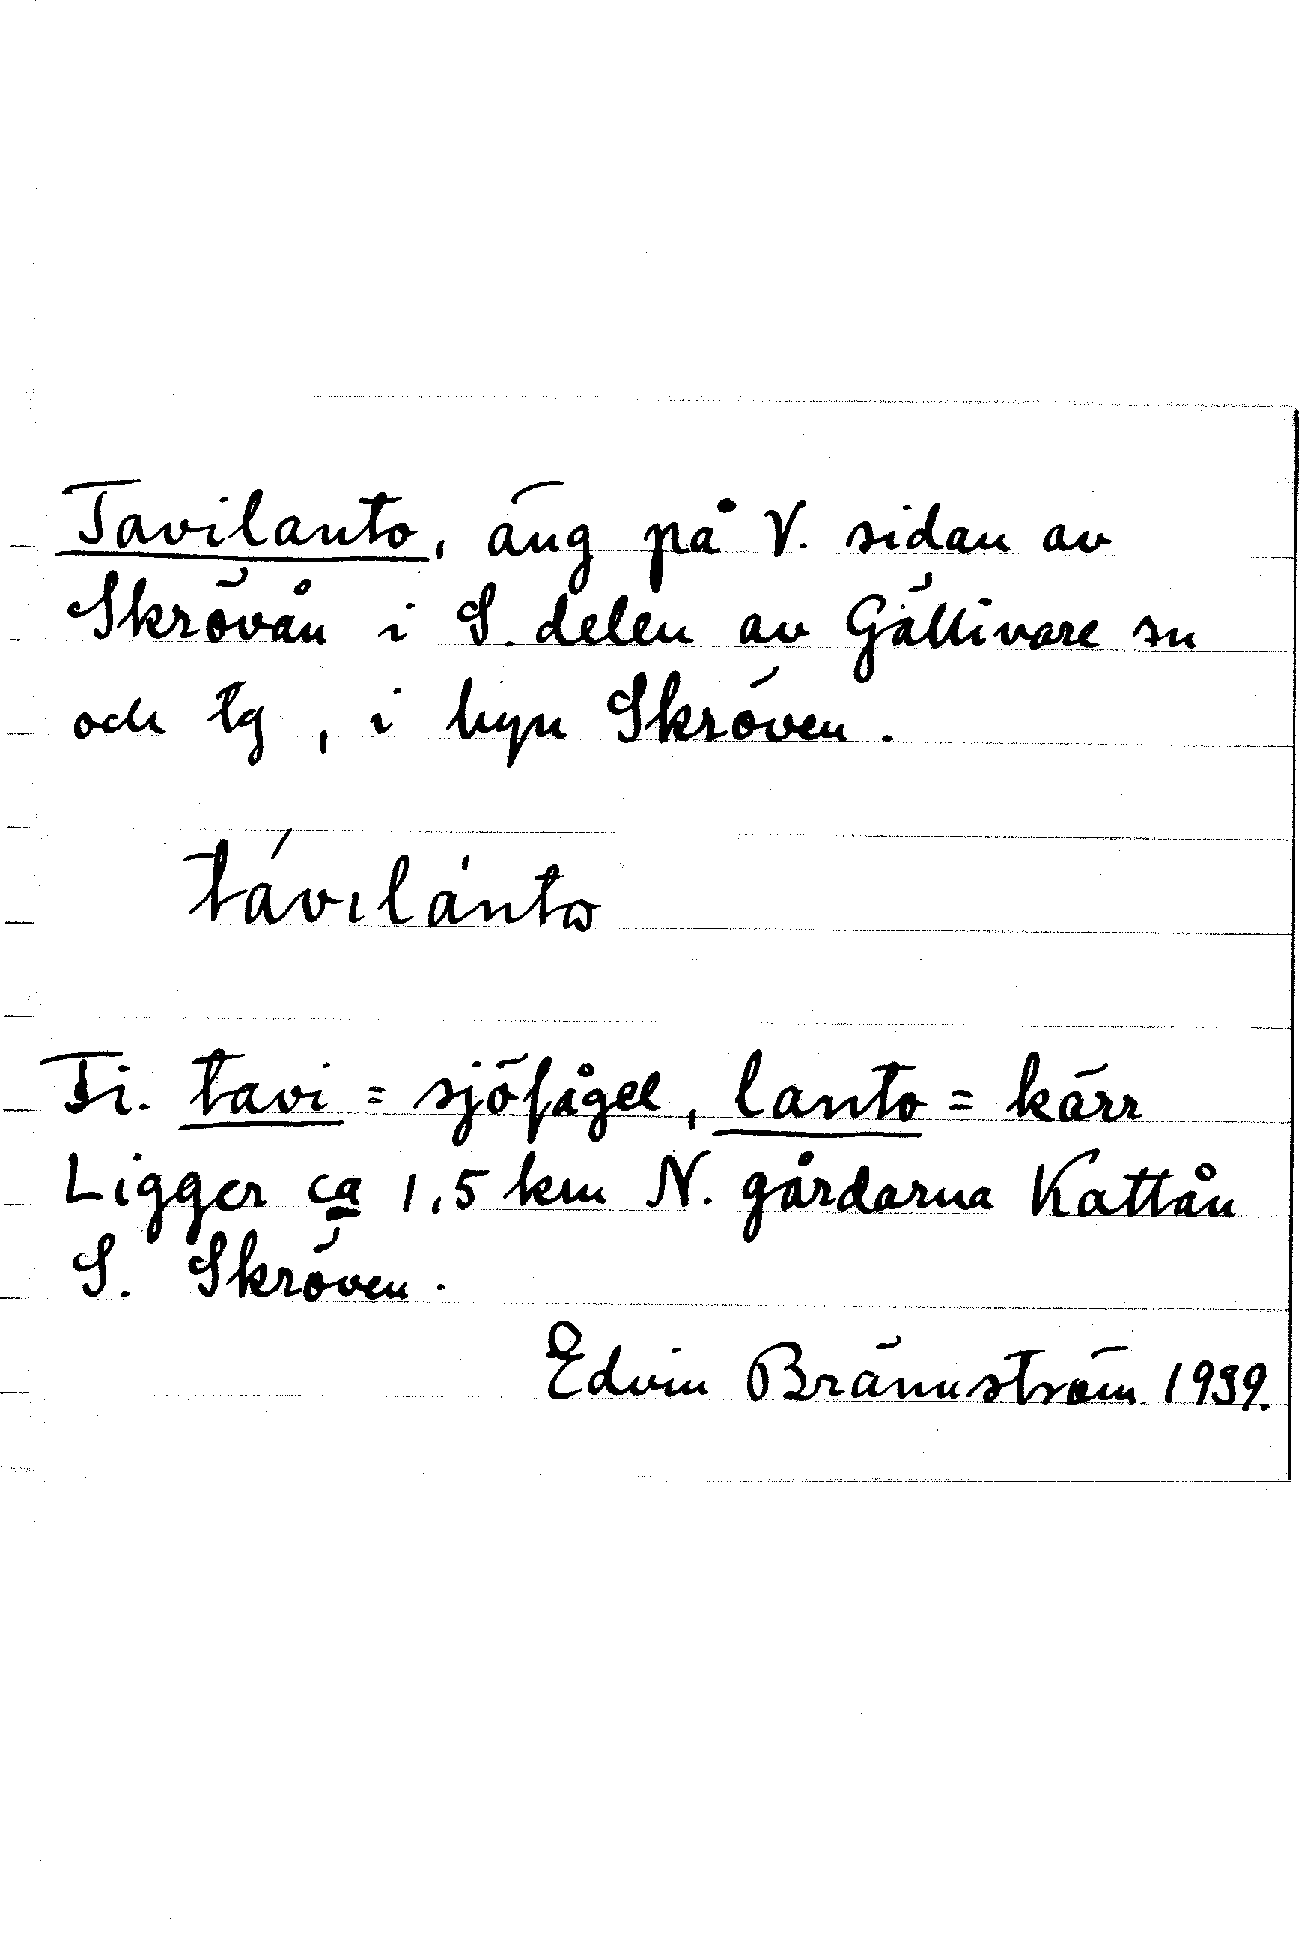 Tavilanto, äng på V. sidan av
Skrövån i S. delen av Gällivare sn
och tg, i byn Skröven.
távılànto
Fi. tavi = sjöfågel, lanto = kärr
Ligger ca 1,5 km N. gårdarna Kattån
S. Skröven.
Edvin Brännström 1939.